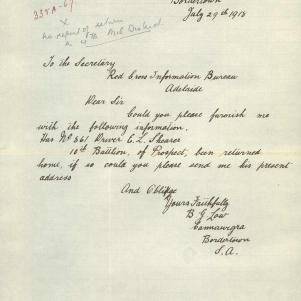 Bordertown
July 29th 1918
338A-67
X
no report of return
a 4th Mil District
To the Secretary
Red Cross Information Bureau
Adelaide
Dear Sir
Could you please furnish me
with the following information.
Has No 361 Driver C. L. Shearer
10th Battlion, of Prospect, been returned
home, if so could you please send me his present
address
And Oblidge
Yours Faithfully
B G Low
Cannawigra
Bordertown
S.A.